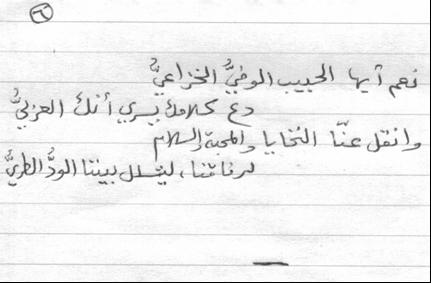 ٦
نعم أيها الحبيب الوفيُّ الخزاعيُّ
دع كلامك يسري أنك العربيُّ
وانقل عنّا التحايا والمحبة والسلام
لرفاقنا، ليتسلل بيننا الودُّ الطريُّ